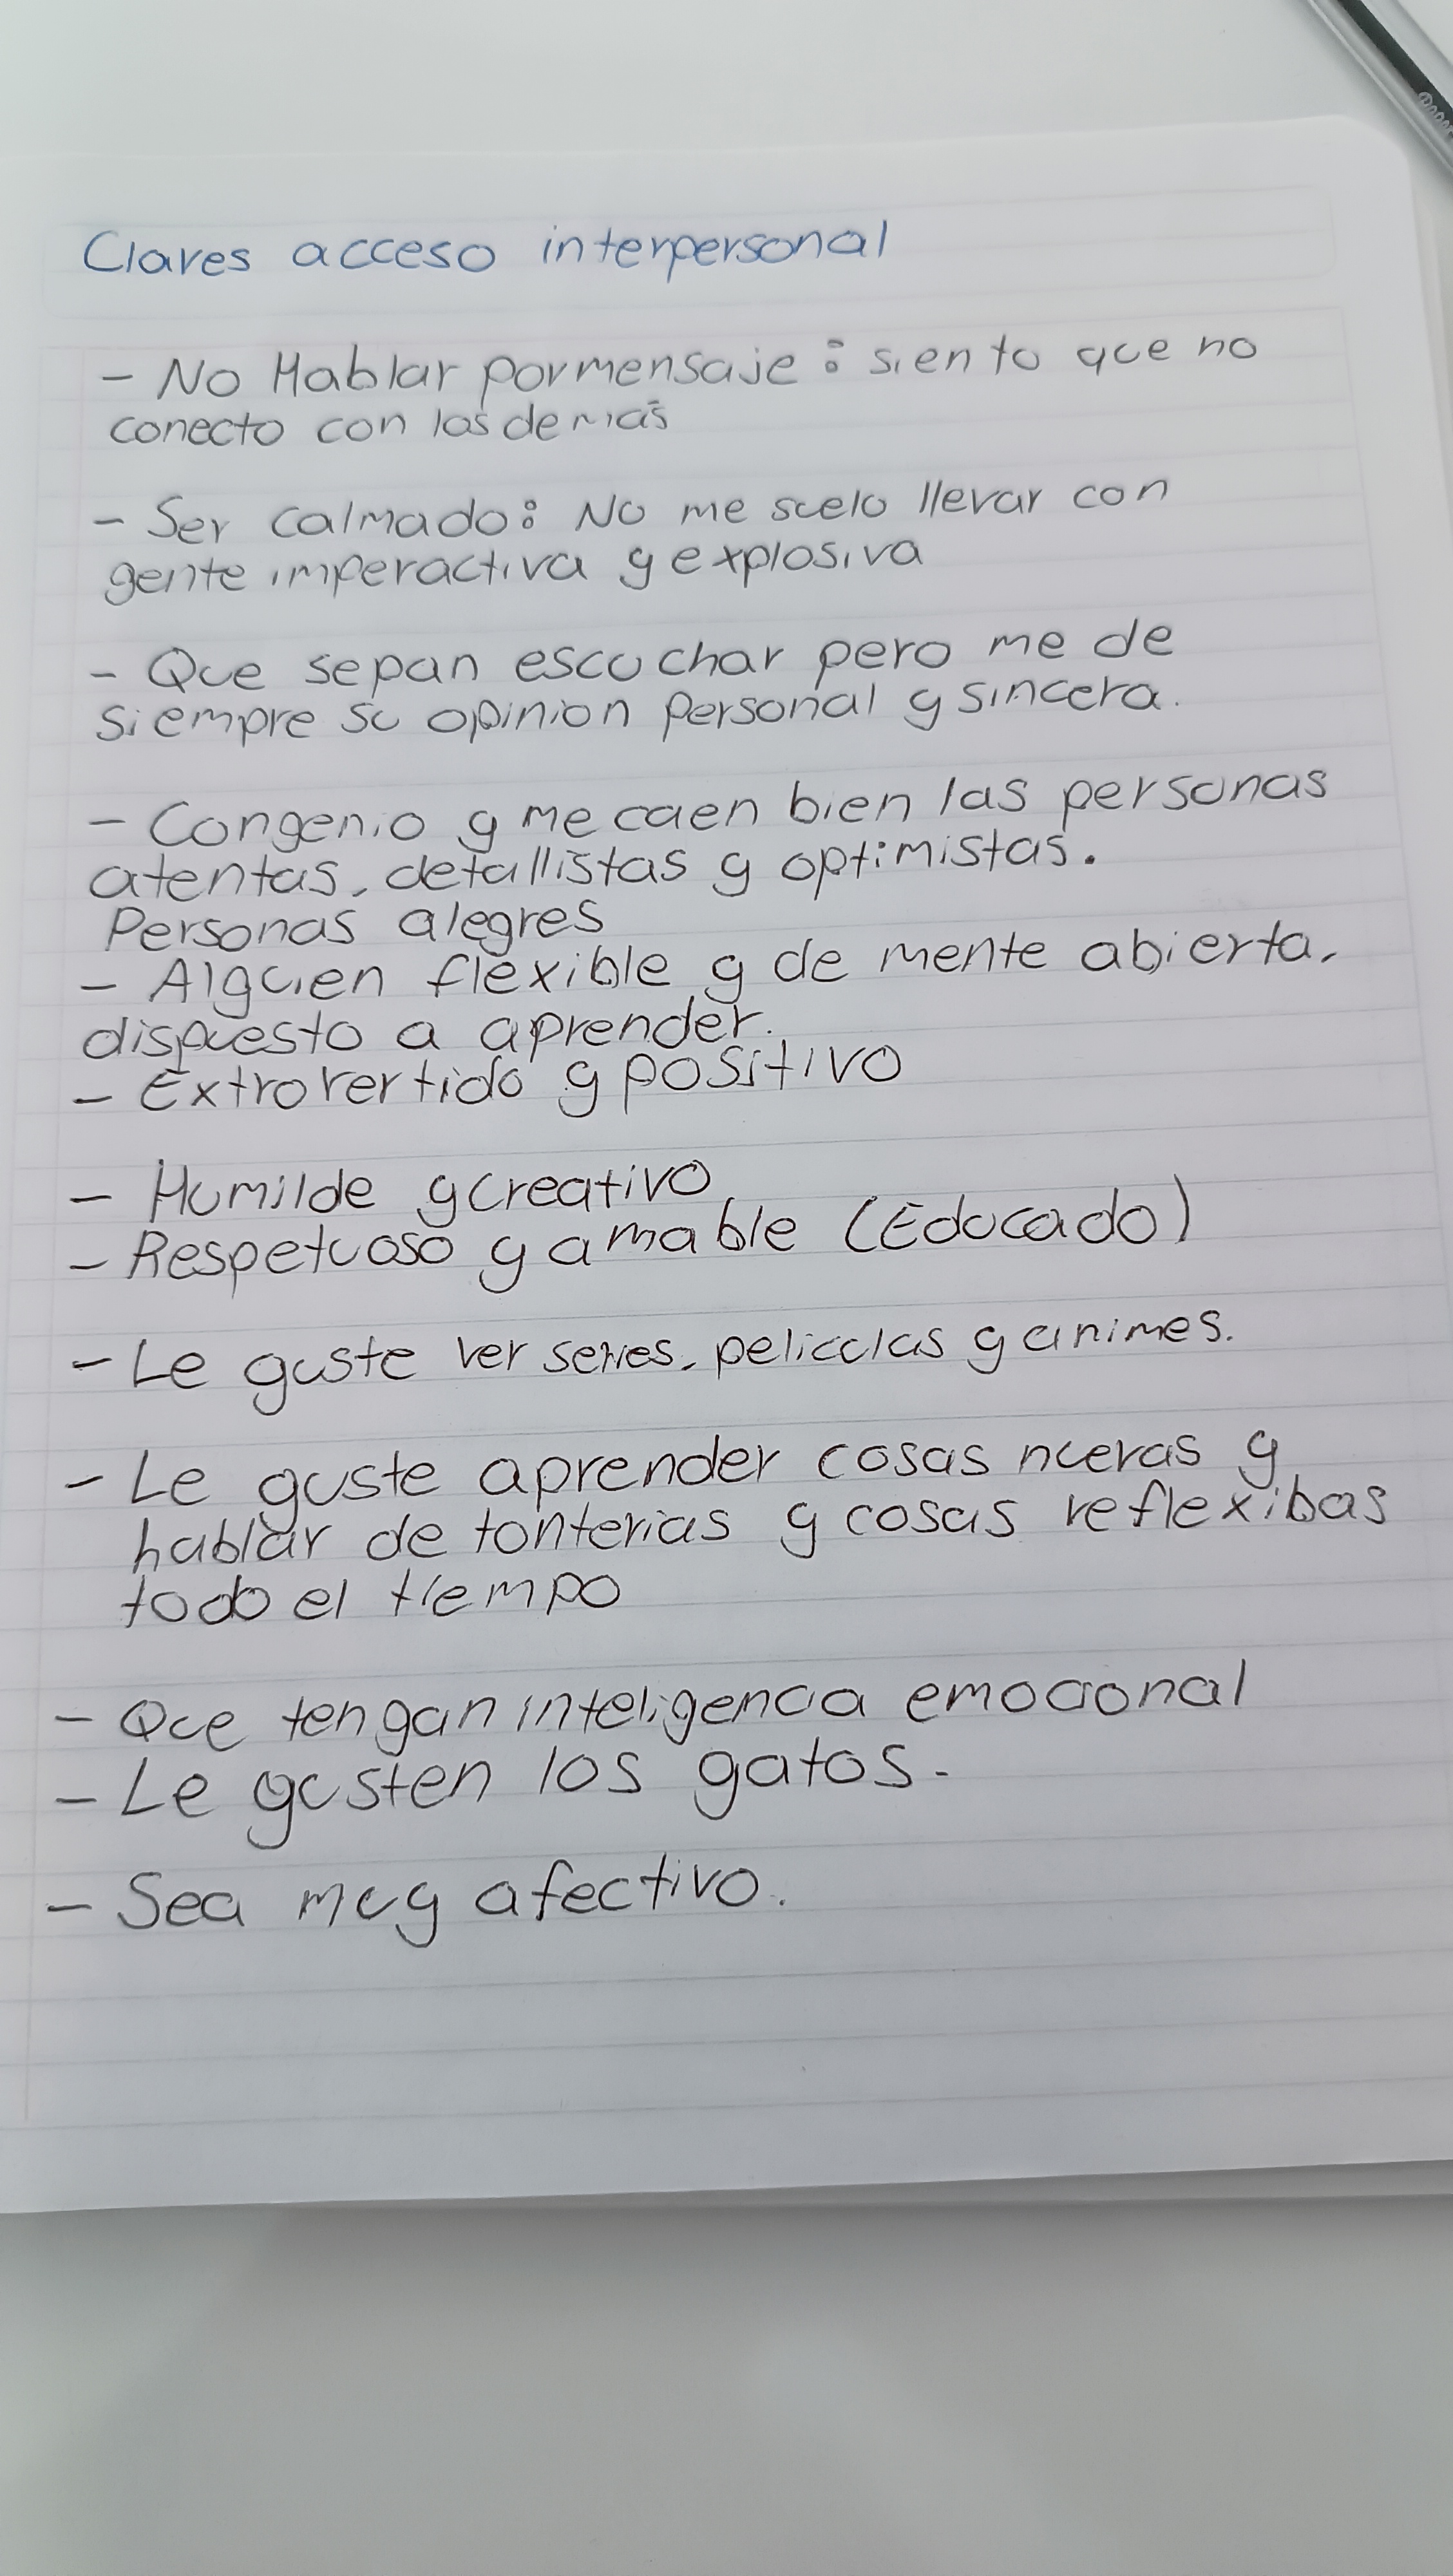 Claves acceso interpersonal
- No Hablar por mensaje: siento que no
conecto con los demás
- Ser calmado: No me suelo llevar con
gente imperactiva y explosiva
- Que sepan escuchar pero me de
siempre su opinion personal y sincera.
- Congenio y me caen bien las personas
atentas, detallistas y optimistas.
Personas alegres
- Alguien flexible y de mente abierta,
dispuesto a aprender.
- Extrovertido y positivo
- Humilde y creativo
- Respetuoso y amable (Educado)
- Le guste ver series, peliculas y animes.
- Le guste aprender cosas nuevas y
hablar de tonterias y cosas reflexibas
todo el tiempo
- Que tengan inteligencia emocional
- Le gusten los gatos.
- Sea muy afectivo.